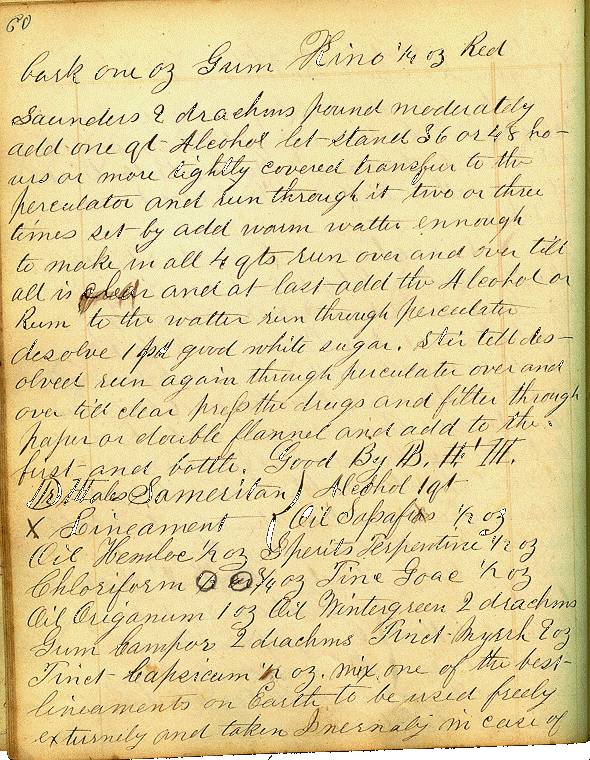 60
bark one oz Gum Kino 1/2 oz Red
Saunders 2 drachms pound moderately
add one qt Alcohol let stand 36 or 48 ho-
urs or more tightly covered transfur to the
perculator and run through it two or three
times set by add worm watter ennough
to make in all 4 qts run over and over till
all is clear and at last add the Alcohol or
Rum to the watter run through perculater
desolve 1 good white sugar. Stir till des-
olved run again through perculater over and
over till clear press the drugs and filter through
paper or double flannel and add to the
furst and bottle. Good By B. H. M.
Dr Hales Sameritan ) Alcohol 1 qt
X Lineament ( Oil Sasafras 1/2 oz
Oil Hemloc 1/2 oz Sperits Terpentine 1/2 oz
Chloriform 3/4 oz Tinc Goac 1/2 oz
Oil Origanum 1 oz Oil Wintergreen 2 drachms
Gum Campor 2 drachms Tinct Myrrh 2 oz
Tinct Capsicum 1/2 oz. mix one of the best
lineaments on Earth to be used freely
externely and taken Inernaly in case of